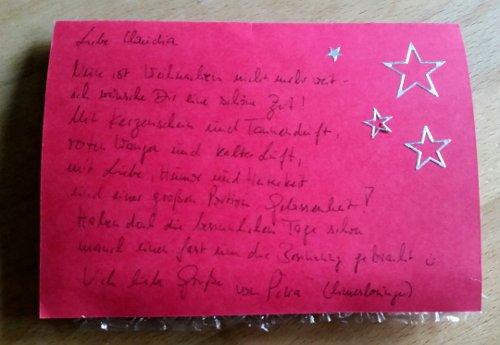 Liebe Claudia
Nun ist Weihnachten nicht mehr weit -
ich wünsche Dir eine schöne Zeit!
Mit Kerzenschein und Tannenduft,
roten Wangen und kalter Luft,
mit Liebe, Humor und Heiterkeit
und einer großen Portion Gelassenheit!
Haben doch die besinnlichen Tage schon
manch einen fast um die Besinnung gebracht ☺
Viele liebe Grüße von Petra